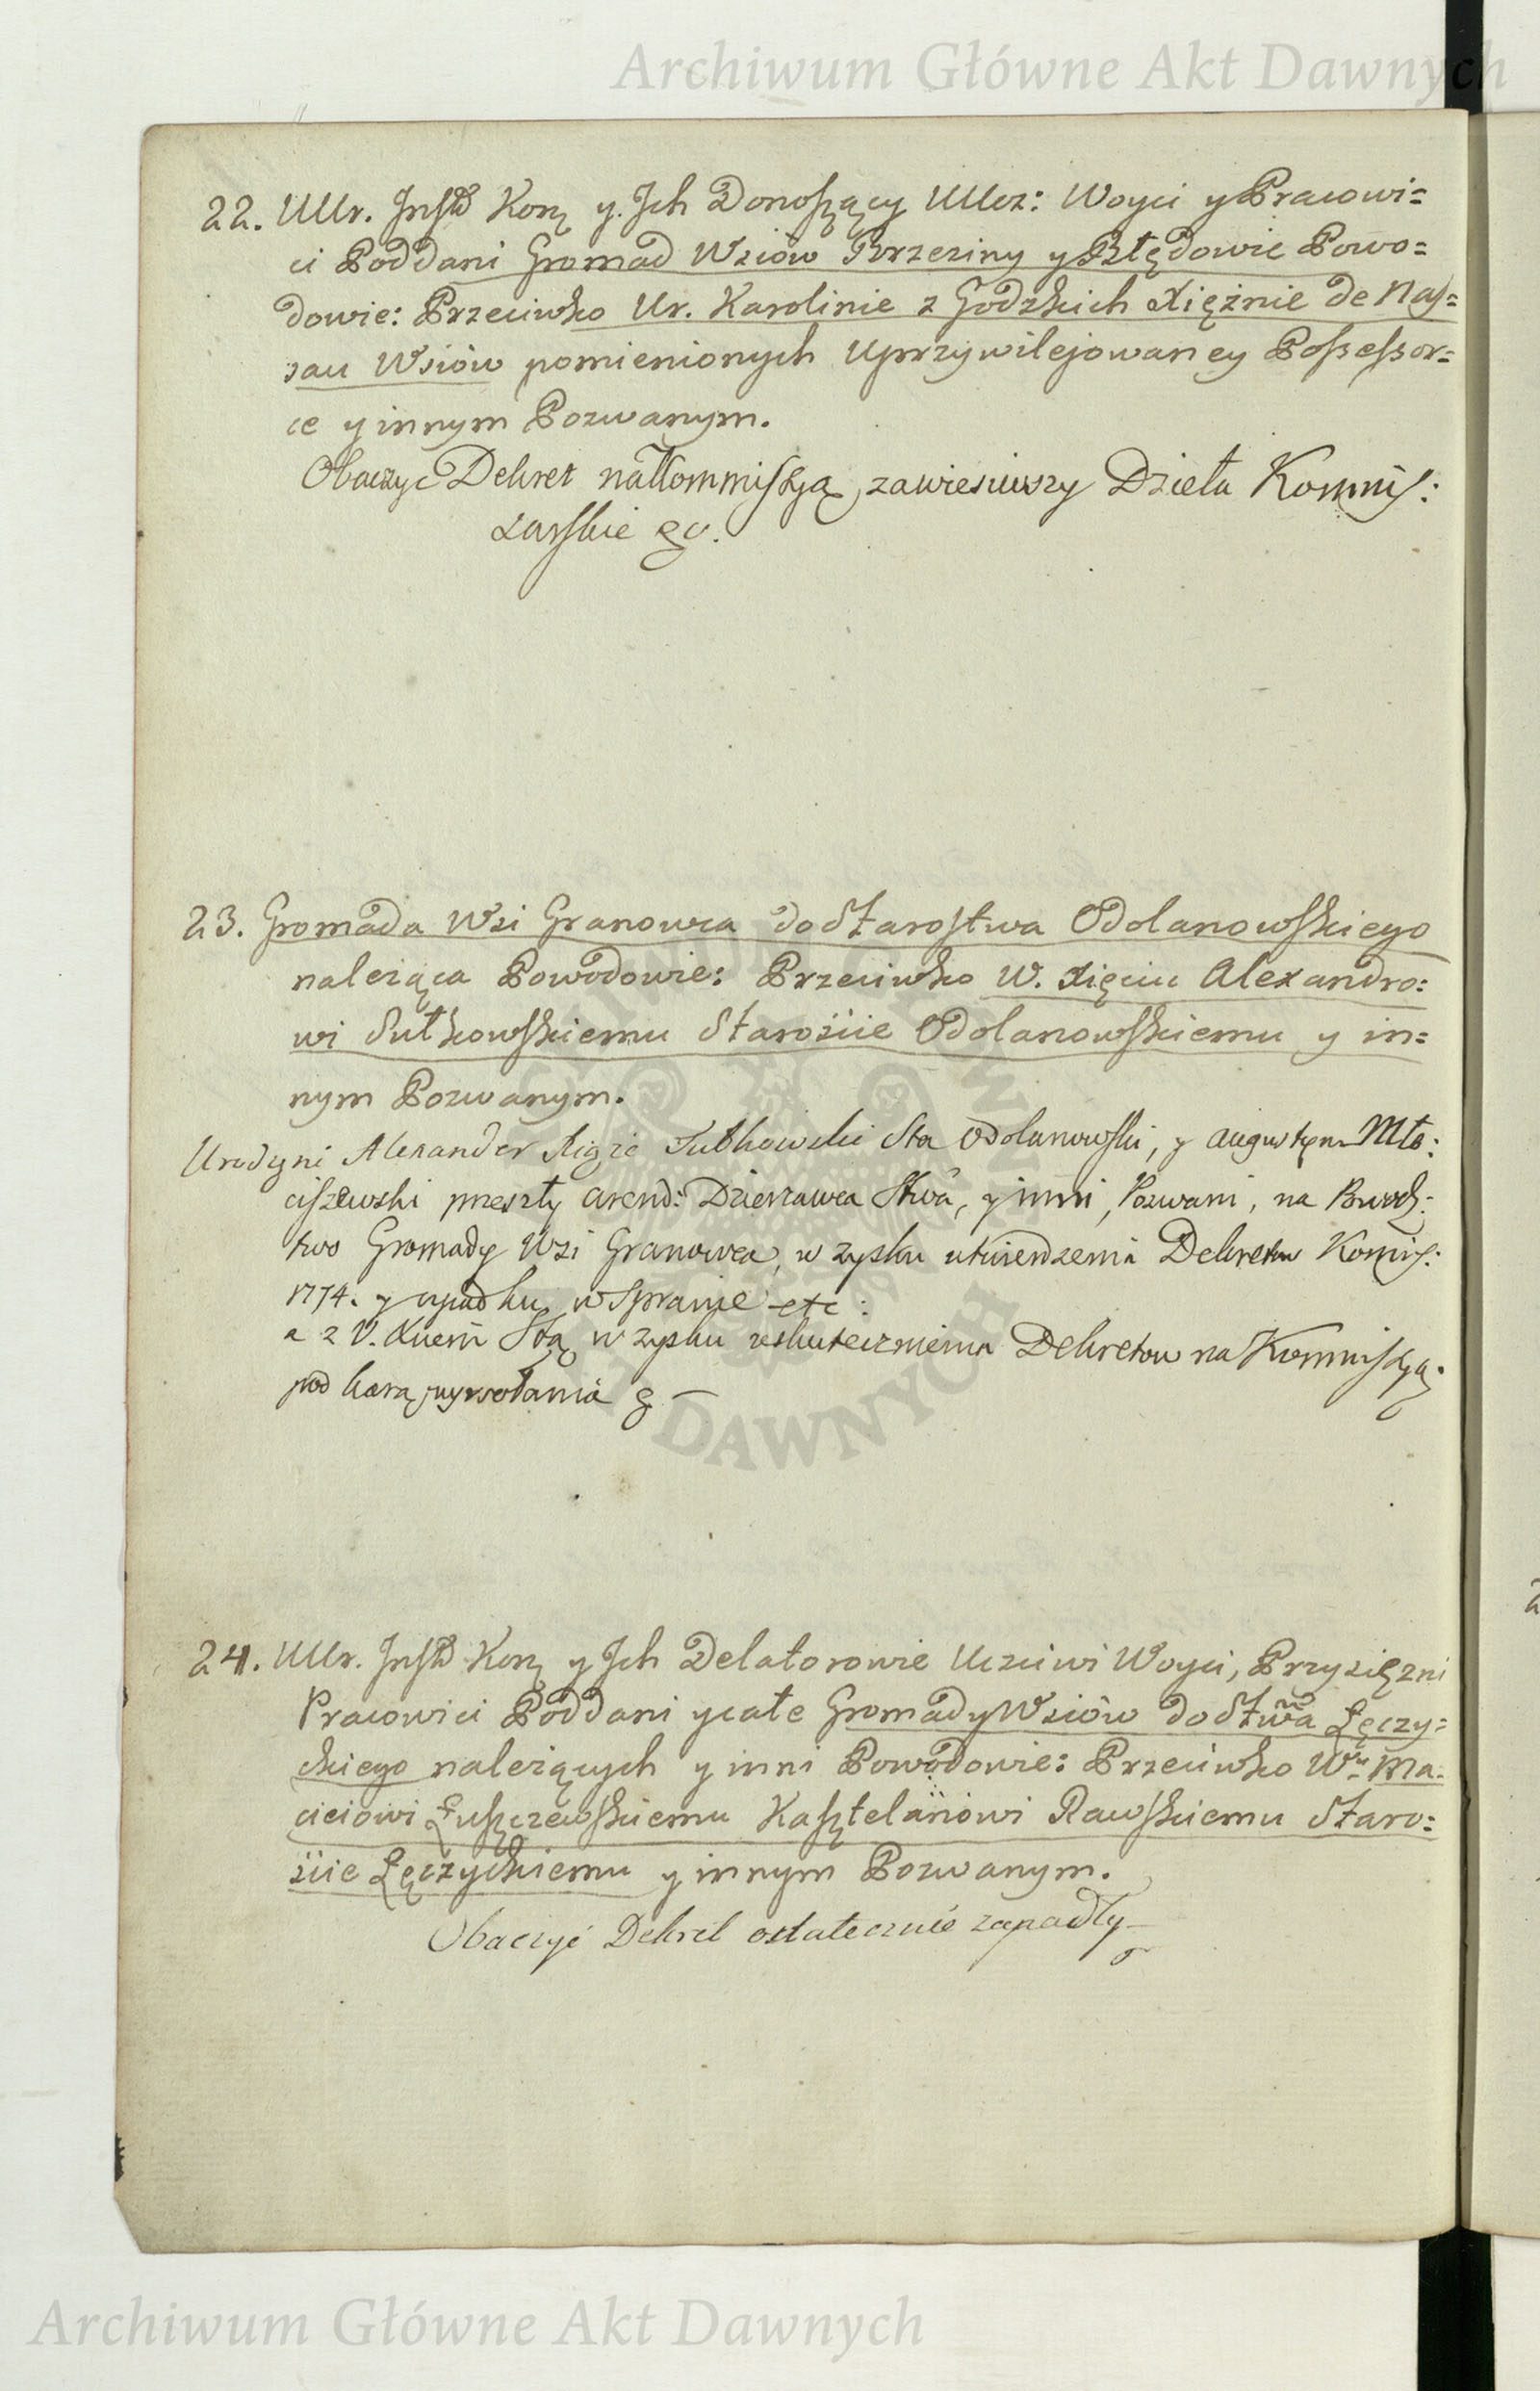 Archiwum Główne Akt Dawnych
22. UUr. Inst. Kor. y. Ich Donoszący UUcz: Woyci y Pracowi=
ci Poddani Gromad Wsiów Brzeziny y Błędowie Powo=
dowie: Przeciwko Ur. Karolinie z Godzkich Xiężnie de Nas=
sau Wsiów pomienionych Uprzywilejowaney Possessor=
ce y innym Pozwanym.
Obaczyc Dekret na Kommissyą, zawiesiwszy Dzieła Kommis:
sarskie
23. Gromada Wsi Granowca do Starostwa Odolanowskiego
należąca Powodowie: Przeciwko W. Xięciu Alexandro:
wi Sułkowskiemu Staroście Odolanowskiemu y in=
nym Pozwanym.
Urodzyni Alexander Xiąże Sułkowski Sta Odolanowski, y Augustyn Mło:
ciszewski przeszły arend: Dzierzawca Stwa, y inni, Pozwani, na Powodz:
two Gromady Wsi Granowca, w zysku utwierdzenia Dekretow Komis:
1774. y upadku w Sprawie etc:
a z V. Stą w zysku uskutecznienia Dekretow na Kommissyą.
pod karą wywołania
24. UUr. Inst. Kor. y Ich Delatorowie Uczciwi Woyci, Przysięzni
Pracowici Poddani y całe Gromady Wsiów do Stwa Łęczy=
ckiego należących y inni Powodowie: Przeciwko W. Ma=
ciciowi Łuszczewskiemu Kasztelanowi Rawskiemu Staro=
ście Łęczyckiemu y innym Pozwanym.
Obaczyć Dekret ostatecznie zapadły
Archiwum Główne Akt Dawnych